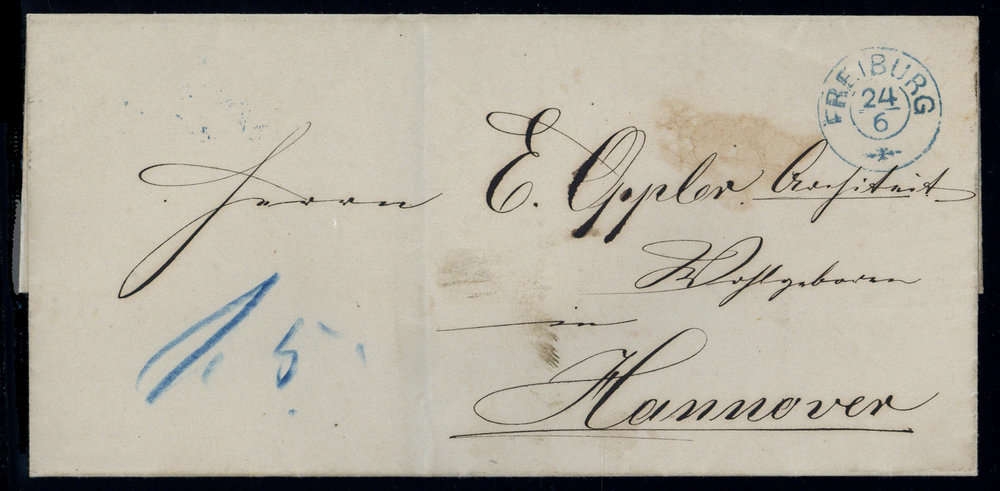 FREIBURG
24
6
Herrn E. Oppler. Architect
Wohlgeboren
in
Hannover
5